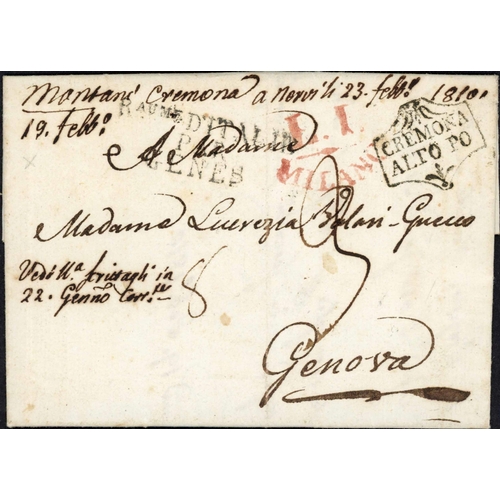 Montani Cremona a Nervili 23. febb.º 1810.
19. febb.º
R.AUME D'ITALIE
PAR
GENES
L.I
MILANO
CREMONA
ALTO PO
A Madame
Madame Lucrezia Balari-Guecco
Vedi N.ª in
22. Genn.º Corr.te
8
3
Genova